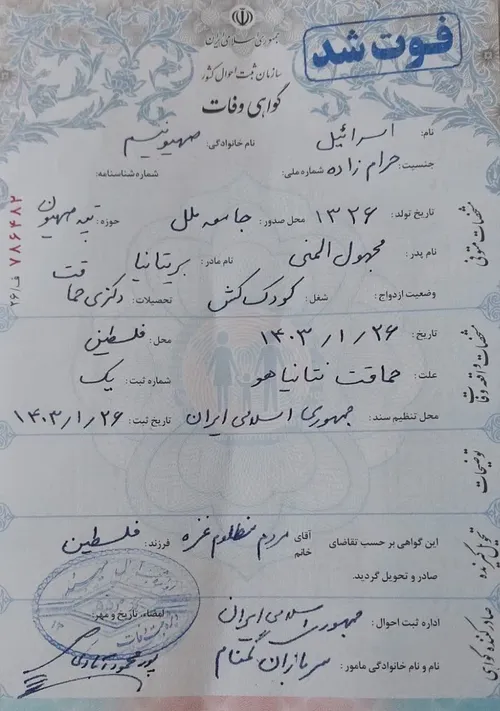 فوت شد
جمهوری اسلامی ایران
سازمان ثبت احوال کشور
گواهی وفات
نام: اسرائیل نام خانوادگی: صهیونیسم
جنسیت: حرام زاده شماره ملی: شماره شناسنامه:
تاریخ تولد: ۱۳۲۶ محل صدور: جامعه ملل حوزه: تپه صهیون
نام پدر: مجهول المنی نام مادر: بریتانیا
وضعیت ازدواج: شغل: کودک کش تحصیلات: دکتری حماقت
مشخصات متوفی
تاریخ: ۱۴۰۳/۱/۲۶ محل: فلسطین
علت: حماقت نتانیاهو شماره ثبت: یک
محل تنظیم سند: جمهوری اسلامی ایران تاریخ ثبت: ۱۴۰۳/۱/۲۶
مشخصات واقعه وفات
توضیحات
این گواهی بر حسب تقاضای آقای خانم مردم مظلوم غزه فرزند: فلسطین
صادر و تحویل گردید.
تحویل گیرنده
اداره ثبت احوال: جمهوری اسلامی ایران امضاء، تاریخ و مهر:
نام و نام خانوادگی مامور: سربازان گمنام
صادر کننده گواهی
۷۸۶۴۸۲
ف/۲۶